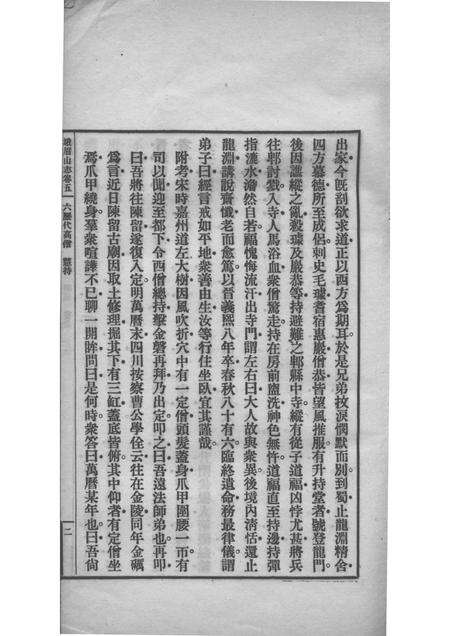 出家今既剖欲求道正以西方為期耳於是兄弟抆淚憫默而別到蜀止龍淵精舍
四方慕德所至成侶刺史毛璩耆宿惠嚴僧恭皆望風推服有升持堂者號登龍門
後因譙縱之亂殺璩及嚴恭等持避難之郫縣中寺縱有從子道福凶悖尤甚將兵
往郫討戮入寺人馬浴血衆僧驚走持在房前盥洗神色無忤道福直至持邊持彈
指漉水澹然自若福愧悔流汗出寺門謂左右曰大人故與衆異後境內清恬還止
龍淵講說齋懺老而愈篤以晉義熙八年卒春秋八十有六臨終遺命務最律儀謂
弟子曰經言戒如平地衆善由生汝等行住坐臥宜其謹哉
附考宋時嘉州道左大樹因風吹折穴中有一定僧頭髮蓋身爪甲圍腰一帀有
司以聞迎至都下令西僧總持擊金磬再拜乃出定叩之曰吾遠法師弟也再叩
曰吾將往陳留遂復入定明萬曆末四川按察曹公學佺云往在金陵同年金礪
爲言近日陳留古廟因取土修理掘其下有三缸蓋底皆俯其中仰者有定僧坐
焉爪甲繞身羣衆喧譁不已聊一開眸問曰是何時衆答曰萬曆某年也曰吾尙
峨眉山志卷五　六歷代高僧　慧持